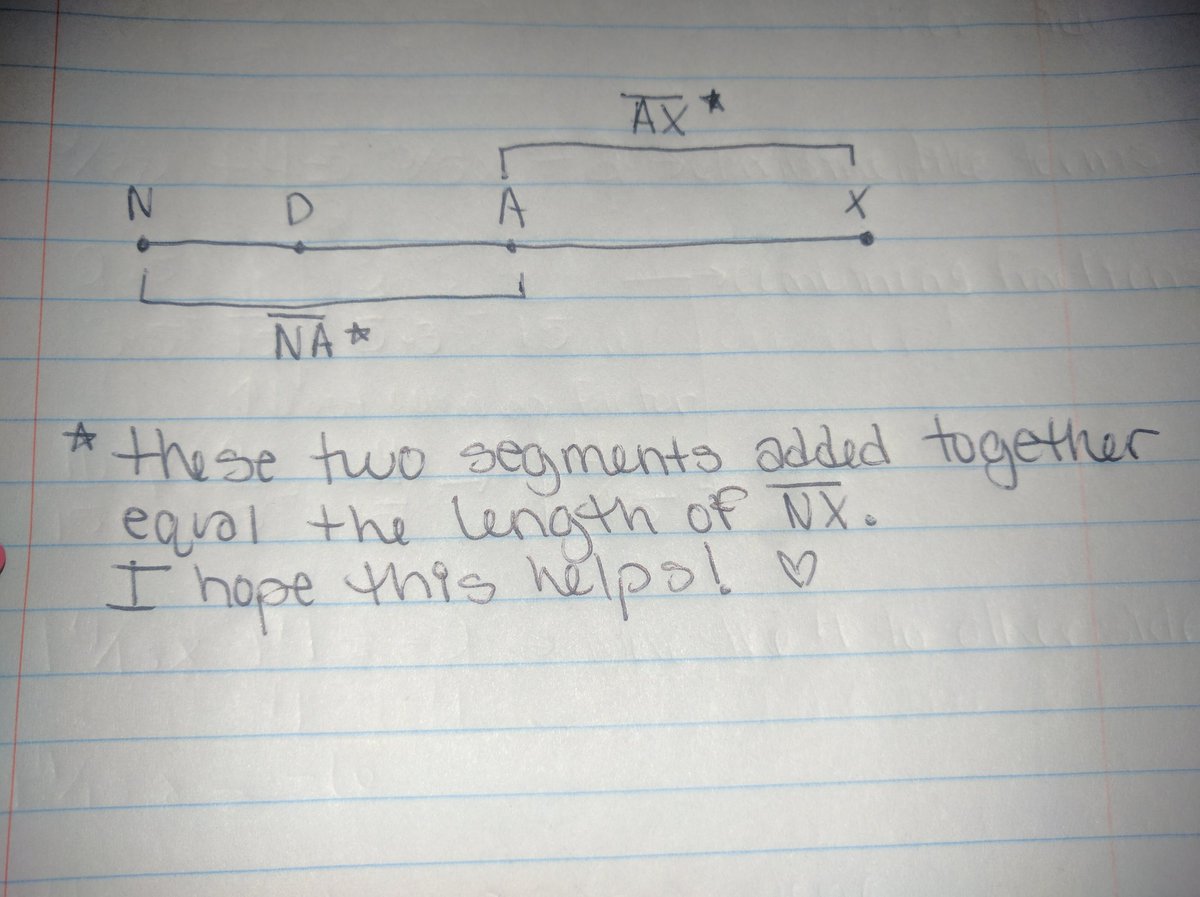 A̅X̅ *
N D A X
N̅A̅ *
* these two segments added together
equal the length of N̅X̅.
I hope this helps! ♡